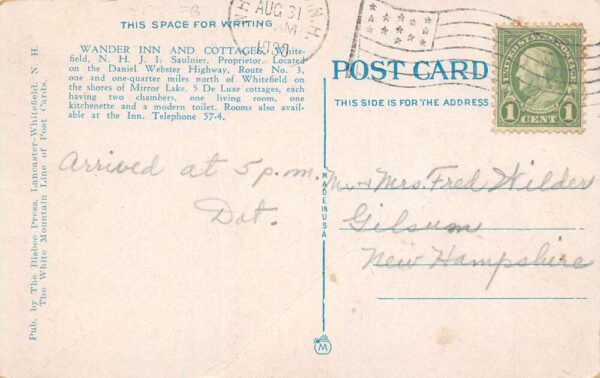 THIS SPACE FOR WRITING
WANDER INN AND COTTAGES, White-
field, N. H. J. I. Saulnier, Proprietor. Located
on the Daniel Webster Highway, Route No. 3,
one and one-quarter miles north of Whitefield on
the shores of Mirror Lake. 5 De Luxe cottages, each
having two chambers, one living room, one
kitchenette and a modern toilet. Rooms also avail-
able at the Inn. Telephone 57-4.
Arrived at 5 p.m.
Dot.
Pub. by The Bisbee Press, Lancaster-Whitefield, N. H.
The White Mountain Line of Post Cards.
MADE IN USA
M
AUG 31
AM
N.H.
POST CARD
THIS SIDE IS FOR THE ADDRESS
UNITED STATES POSTAGE
FRANKLIN
1 1
CENT
Mr & Mrs. Fred Wilder
Gilsum
New Hampshire